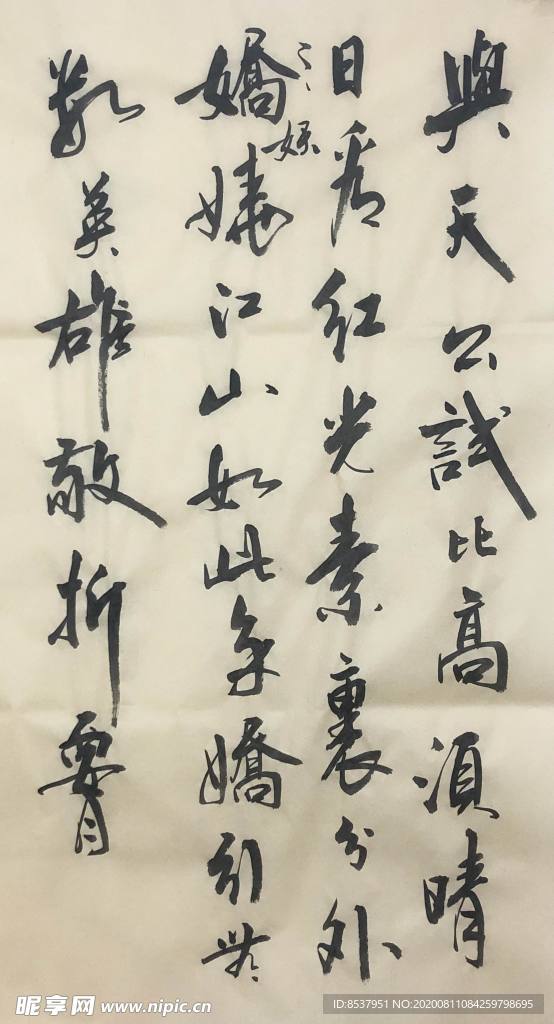 與天公試比高須晴
日看红光素裹分外
妖
嬌嬈江山如此多嬌引無
數英雄敬折腰
昵享网 www.nipic.cn
ID:8537951 NO:20200811084259798695